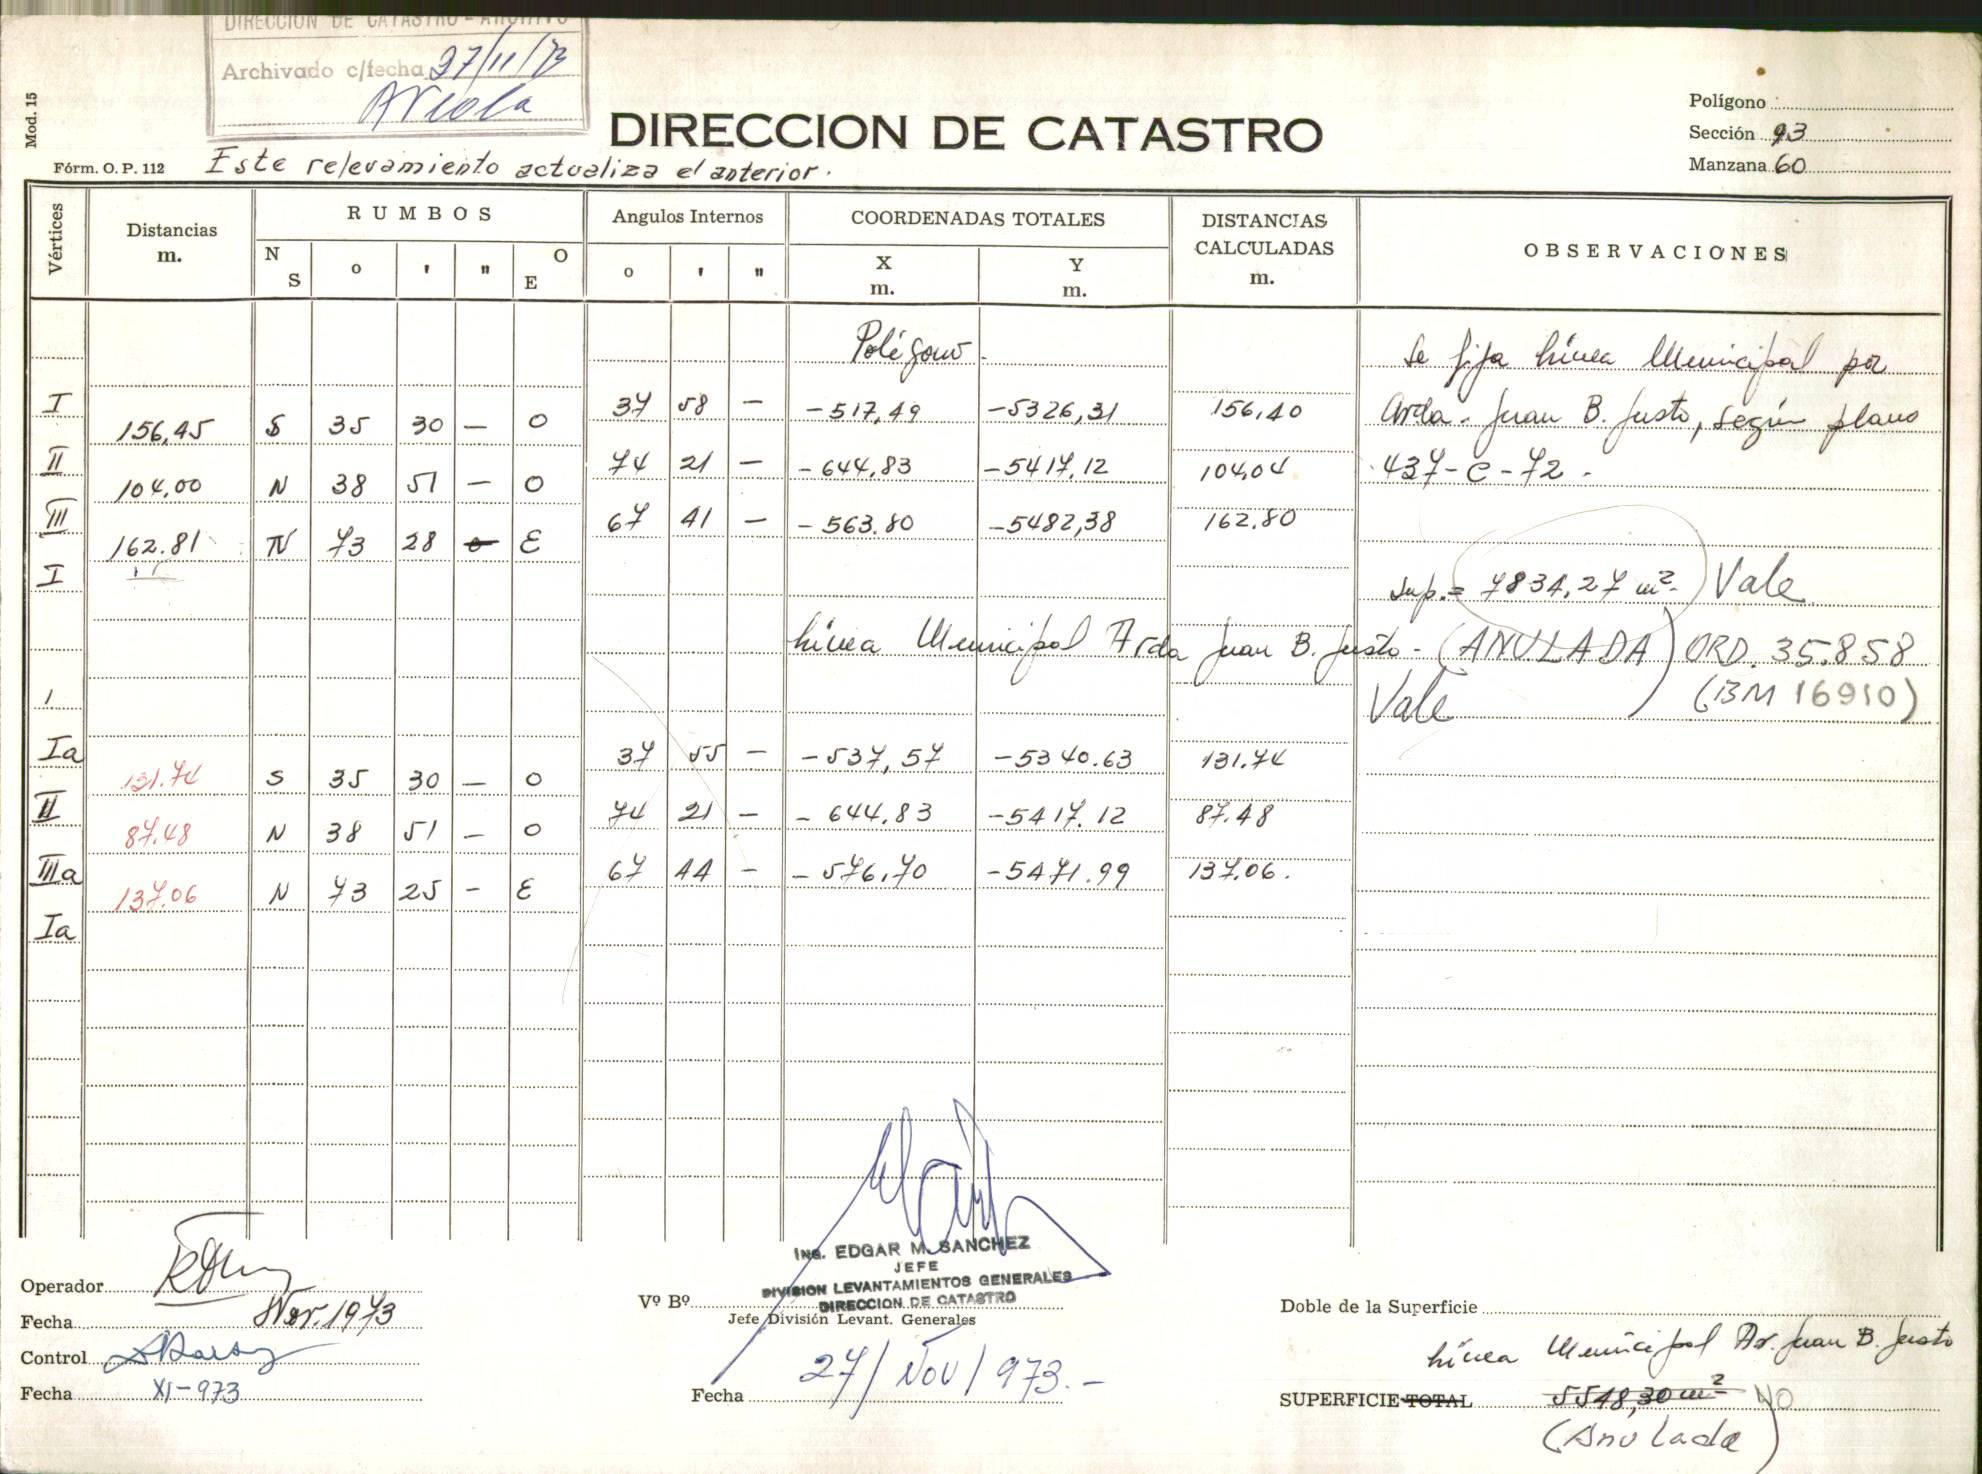 DIRECCION DE CATASTRO - ARCHIVO
Archivado c/fecha 27/11/73
Mod. 15
DIRECCION DE CATASTRO
Polígono
Sección 93
Manzana 60
Fórm. O. P. 112 Este relevamiento actualiza el anterior.
Vértices Distancias m. RUMBOS N S o ' " O E Angulos Internos o ' " COORDENADAS TOTALES X m. Y m. DISTANCIAS CALCULADAS m. OBSERVACIONES
Polígono. Se fija línea Municipal por
I 37 58 — -517,49 -5326,31 156,40 Avda. Juan B. Justo, según plano
156,45 S 35 30 — O
II 74 21 — -644,83 -5417,12 104,04 437-C-72.
104,00 N 38 51 — O
III 67 41 — -563.80 -5482,38 162.80
162.81 N 73 28 E
I Sup.= 7834,27 m². Vale
Línea Municipal Avda Juan B. Justo - (ANULADA) ORD. 35.858
Vale (BM 16910)
Ia 37 55 — -537,57 -5340.63 131.74
131.74 S 35 30 — O
II 74 21 — -644.83 -5417.12 87.48
87.48 N 38 51 — O
IIIa 67 44 - -576,70 -5471.99 137.06.
137.06 N 73 25 - E
Ia
Ing. EDGAR M. SANCHEZ
JEFE
DIVISION LEVANTAMIENTOS GENERALES
DIRECCION DE CATASTRO
Operador
Vº Bº
Jefe División Levant. Generales
Doble de la Superficie
Fecha Nov. 1973
Control
Línea Municipal Av. Juan B. Justo
Fecha XI-973
Fecha 27/Nov/973.-
SUPERFICIE TOTAL 5548,30 m² NO
(Anulada)